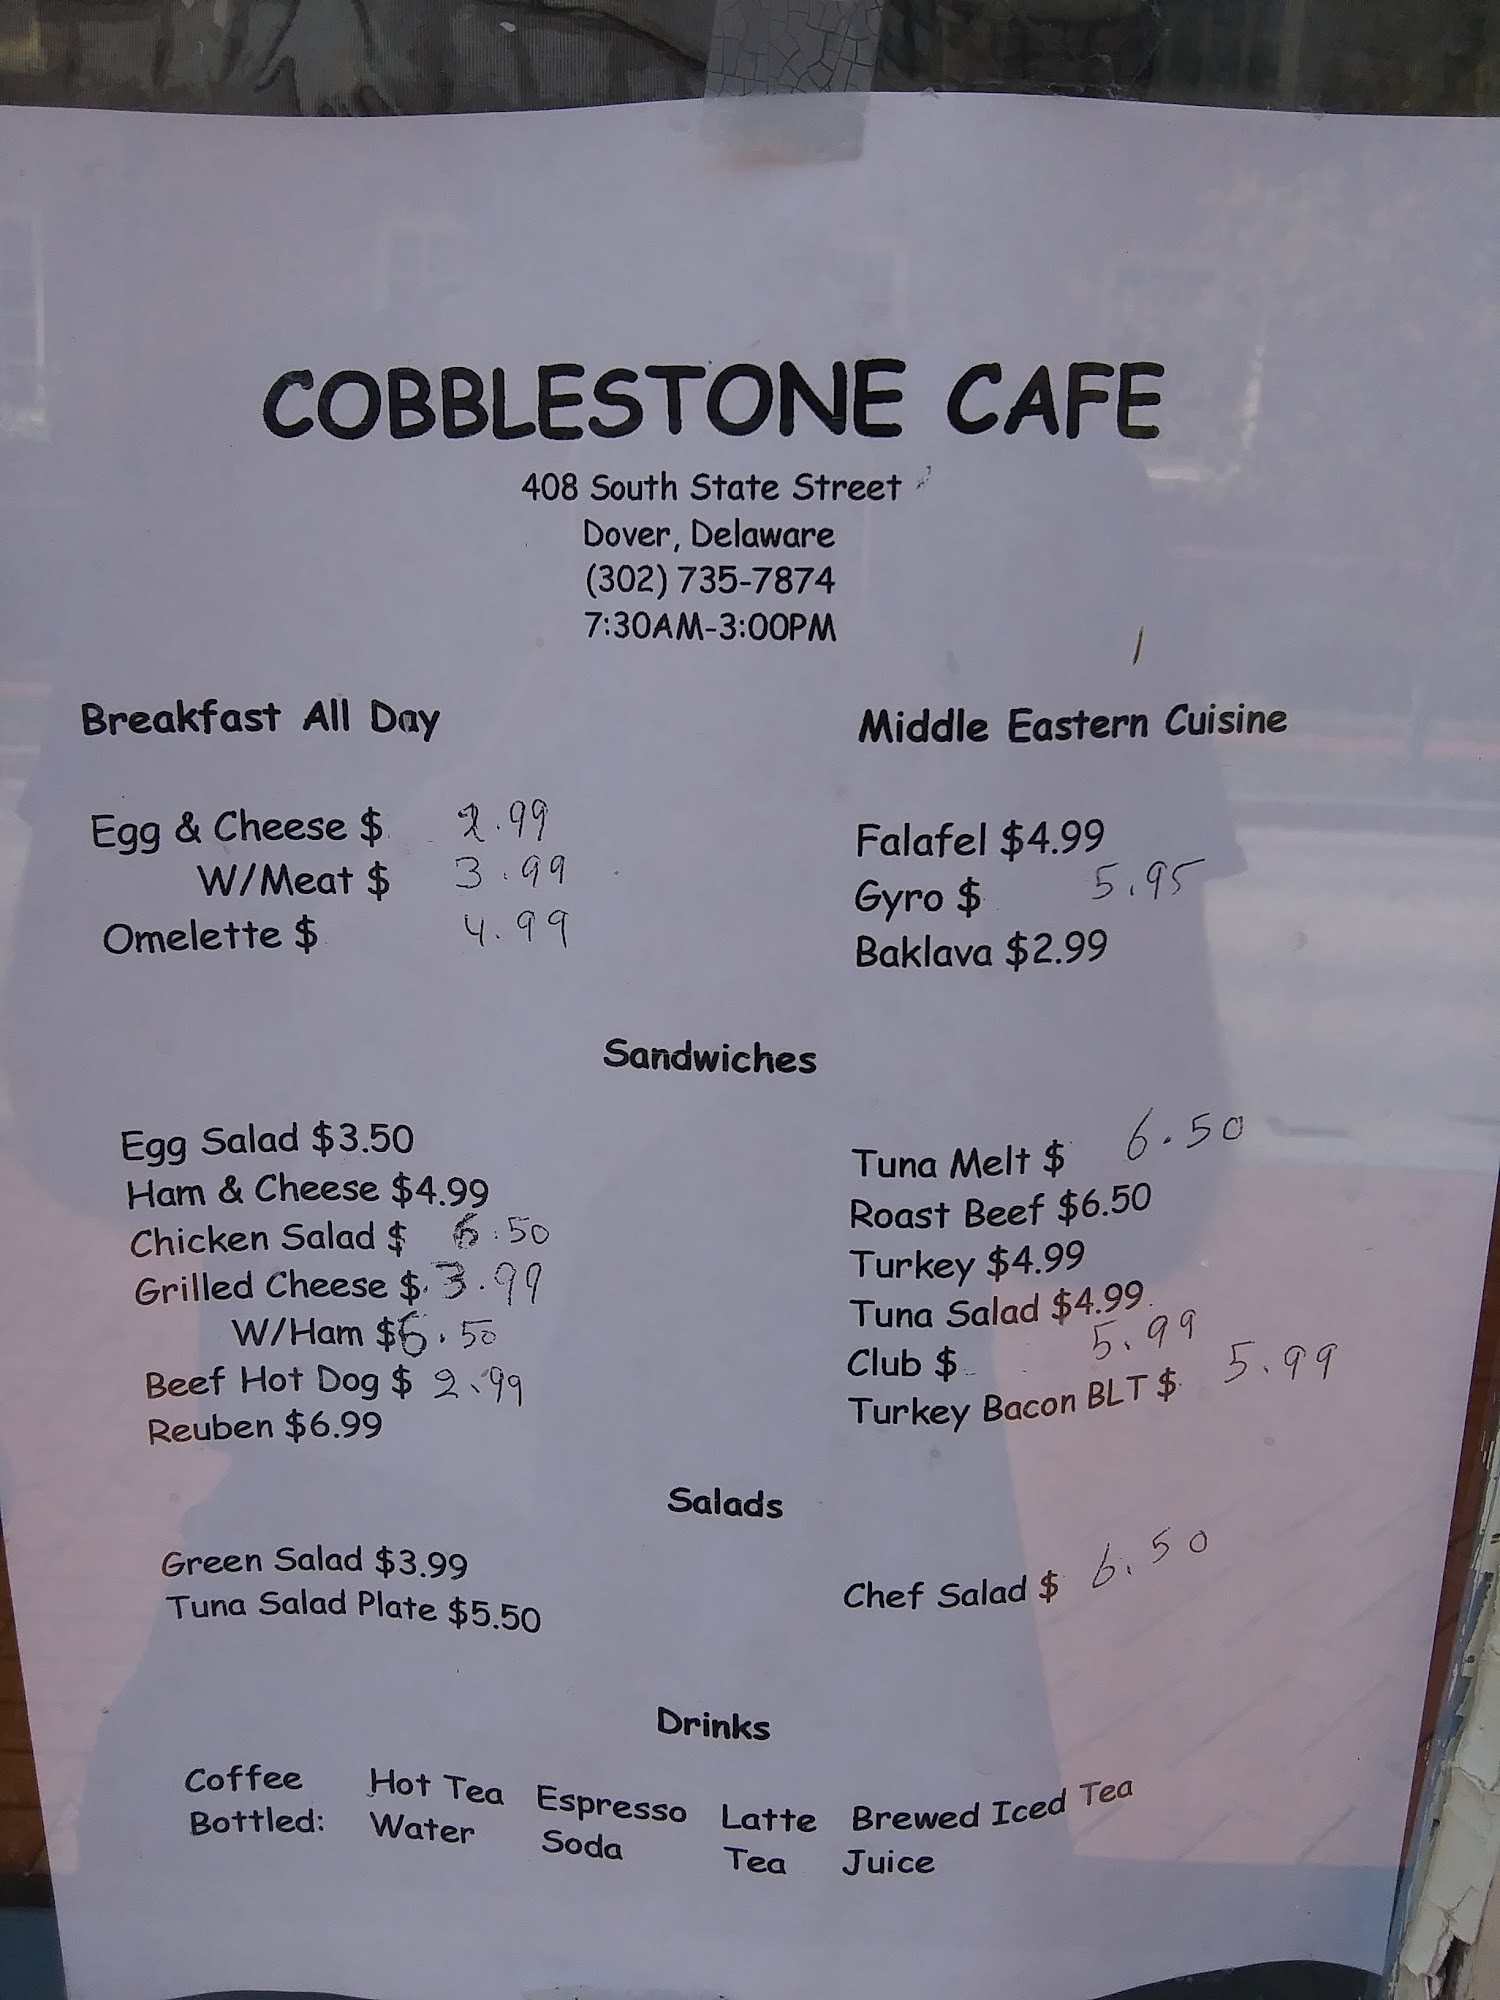 COBBLESTONE CAFE
408 South State Street
Dover, Delaware
(302) 735-7874
7:30AM-3:00PM
Breakfast All Day
Egg & Cheese $ 2.99
W/Meat $ 3.99
Omelette $ 4.99
Middle Eastern Cuisine
Falafel $4.99
Gyro $ 5.95
Baklava $2.99
Sandwiches
Egg Salad $3.50
Ham & Cheese $4.99
Chicken Salad $ 6.50
Grilled Cheese $ 3.99
W/Ham $6.50
Beef Hot Dog $ 2.99
Reuben $6.99
Tuna Melt $ 6.50
Roast Beef $6.50
Turkey $4.99
Tuna Salad $4.99
Club $ 5.99
Turkey Bacon BLT $ 5.99
Salads
Green Salad $3.99
Tuna Salad Plate $5.50
Chef Salad $ 6.50
Drinks
Coffee Hot Tea Espresso Latte Brewed Iced Tea
Bottled: Water Soda Tea Juice